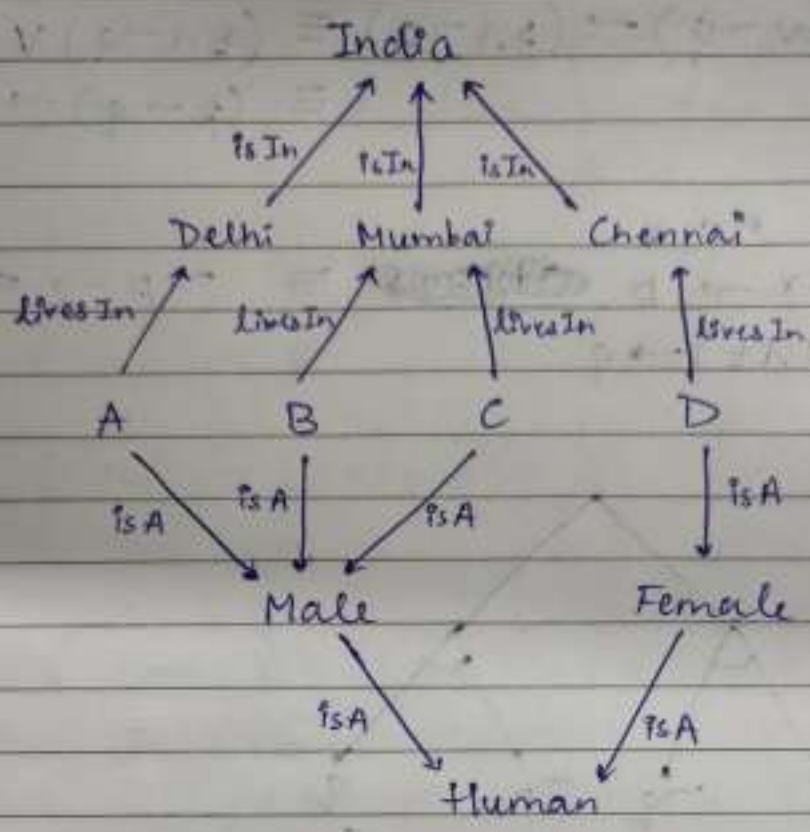 India
isIn isIn isIn
Delhi Mumbai Chennai
livesIn livesIn livesIn livesIn
A B C D
isA isA isA isA
Male Female
isA isA
Human